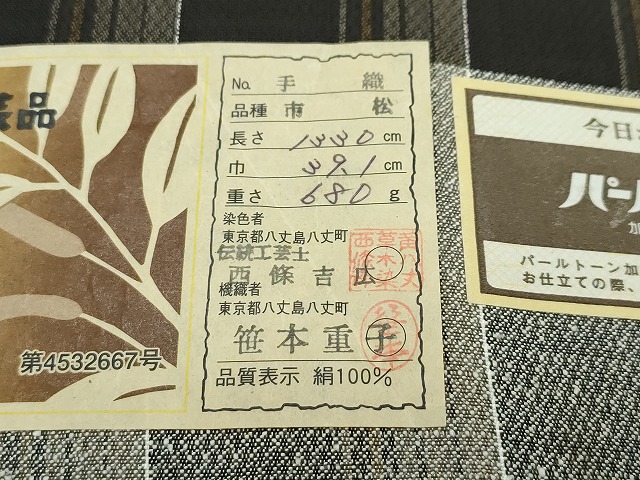 No. 手織
品種 市松
長さ 1330 cm
巾 39.1 cm
重さ 680 g
染色者
東京都八丈島八丈町
伝統工芸士
西條吉広
機織者
東京都八丈島八丈町
笹本重子
品質表示 絹100%
黄八丈
草木染
西條
品
第4532667号
今日
パール
加
パールトーン加
お仕立ての際、